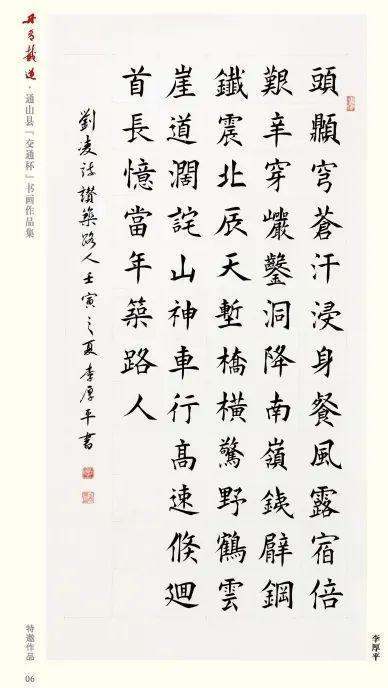 丹青載道·通山县「交通杯」书画作品集
頭穹蒼汗浸身餐風露宿倍
艱辛穿巖鑿洞降南嶺銕臂鋼
震北辰天塹橋橫驚野鶴雲
崖道濶詫山神車行高速倏廻
首長憶當年築路人
劉凌詩讚築路人壬寅之夏李厚平書
李厚平
特邀作品
06